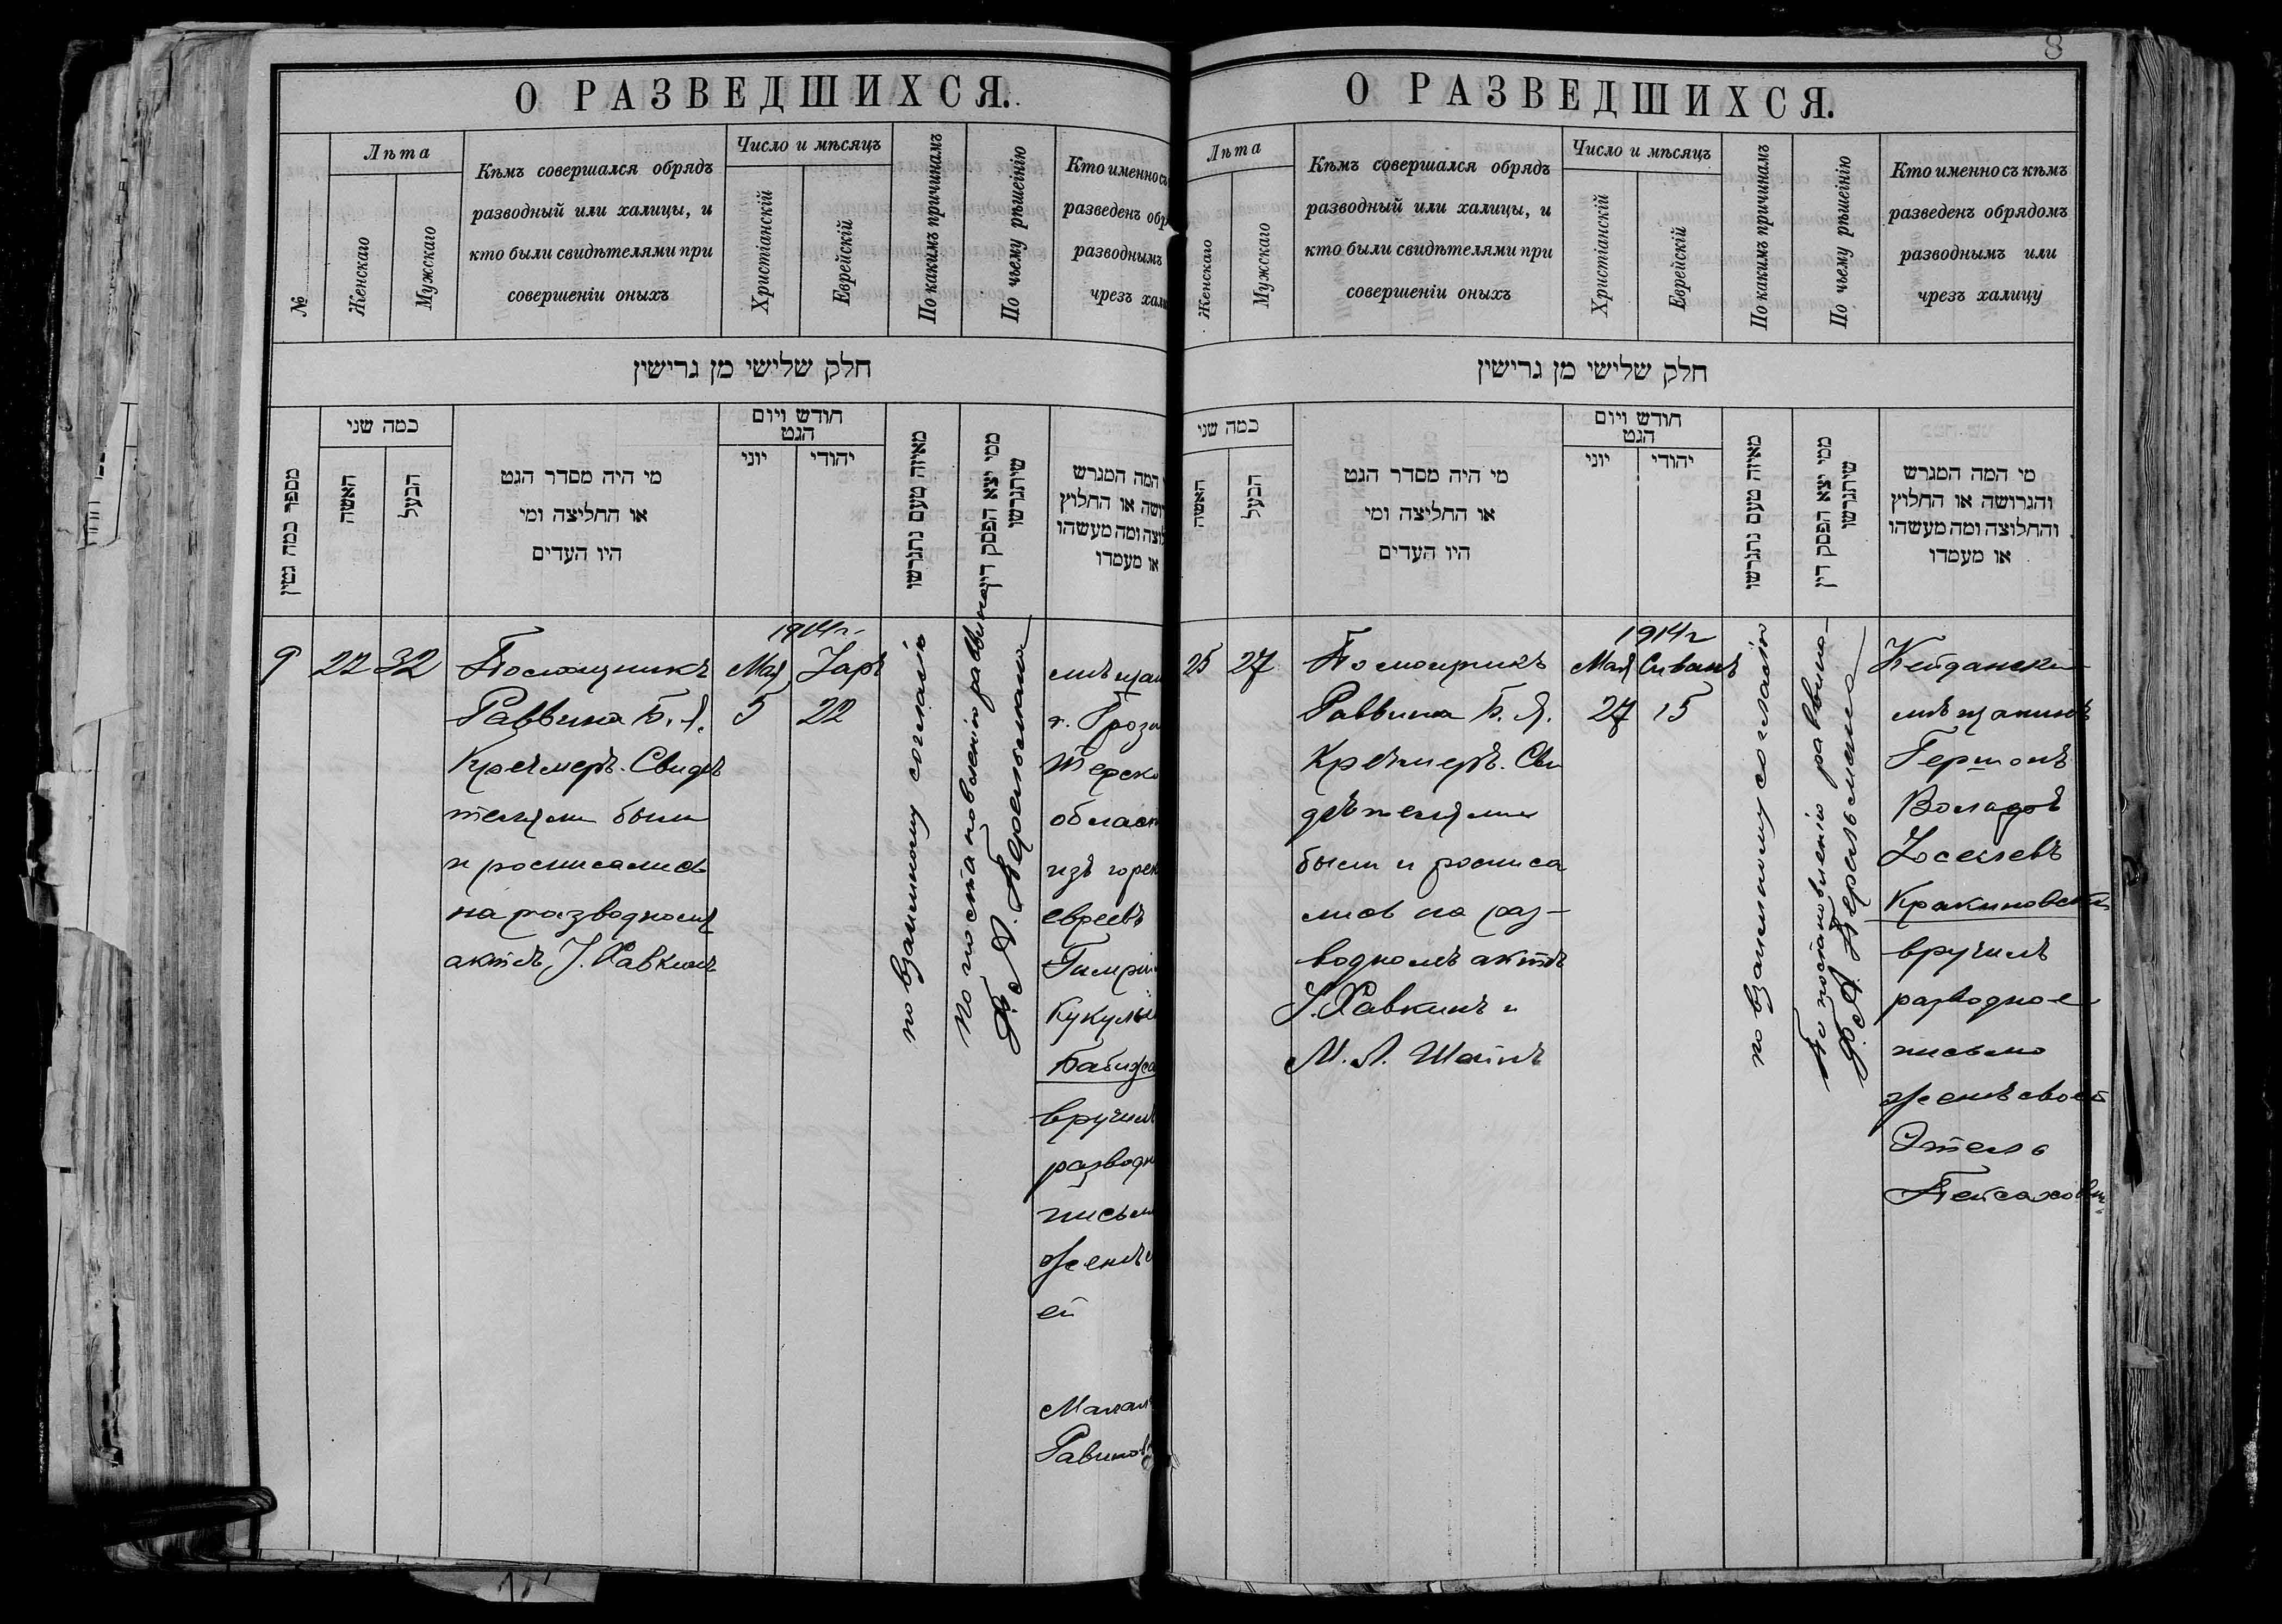 8
О РАЗВЕДШИХСЯ.
№
Лѣта
Женскаго
Мужскаго
Кѣмъ совершался обрядъ
разводный или халицы, и
кто были свидѣтелями при
совершеніи оныхъ
Число и мѣсяцъ
Христіанскій
Еврейскій
По какимъ причинамъ
По чьему рѣшеінію
Кто именно съ
разведенъ обр
разводнымъ
чрезъ хали
חלק שלישי מן גרישין
מספר כמה גטין
כמה שני
האשה
הבעל
מי היה מסדר הגט
או החליצה ומי
היו העדים
חודש ויום
הגט
יוני
יהודי
מאיזה טעם נתגרשו
ממי יצא הפסק דין
שיתגרשו
המה המגרש
ושה או החלוץ
לוצה ומה מעשהו
או מעמדו
9
22
32
Помощникъ
Раввина Б. Я.
Кречмеръ. Свидѣ
телями были
и росписались
на разводномъ
актѣ, І. Хавкинъ
1914 г.
Мая Іаръ
5 22
по взаимному согласію
По постановленію раввина
Ф. А. Перельмана
мѣщан
г. Грозн
Терско
област
изъ горск
евреевъ
Кукул
вручилъ
разводн
письм
женѣ с
ей
О РАЗВЕДШИХСЯ.
Лѣта
Женскаго
Мужскаго
Кѣмъ совершался обрядъ
разводный или халицы, и
кто были свидѣтелями при
совершеніи оныхъ
Число и мѣсяцъ
Христіанскій
Еврейскій
По какимъ причинамъ
По чьему рѣшеінію
Кто именно съ кѣмъ
разведенъ обрядомъ
разводнымъ или
чрезъ халицу
חלק שלישי מן גרישין
כמה שני
האשה
הבעל
מי היה מסדר הגט
או החליצה ומי
היו העדים
חודש ויום
הגט
יוני
יהודי
מאיזה טעם נתגרשו
ממי יצא הפסק דין
שיתגרשו
מי המה המגרש
והגרושה או החלוץ
והחלוצה ומה מעשהו
או מעמדו
25
27
Помощникъ
Раввина Б. Я.
Кречмеръ. Сви
дѣтелями
были и росписа
лись на раз-
водномъ актѣ
І. Хавкинъ и
М. Л. Шаинъ
1914 г
Мая Сиванъ
27 15
по взаимному согласію
По постановленію раввина
Ф. А. Перельмана
Кейданскі
мѣщанинъ
Гершонъ
Іоселевъ
Кракиновскі
вручилъ
разводное
письмо
женѣ своей
Этель
Пейсахов